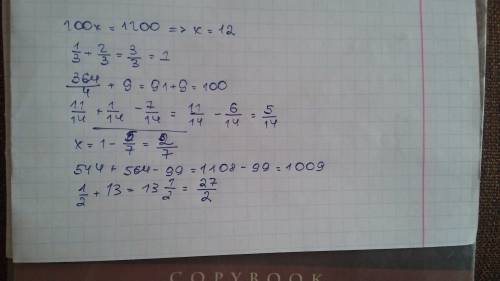 100x = 1200 => x = 12
1/3 + 2/3 = 3/3 = 1
364/4 + 9 = 91 + 9 = 100
11/14 + 1/14 - 7/14 = 11/14 - 6/14 = 5/14
x = 1 - 5/7 = 2/7
544 + 564 - 99 = 1108 - 99 = 1009
1/2 + 13 = 13 1/2 = 27/2
COPYBOOK